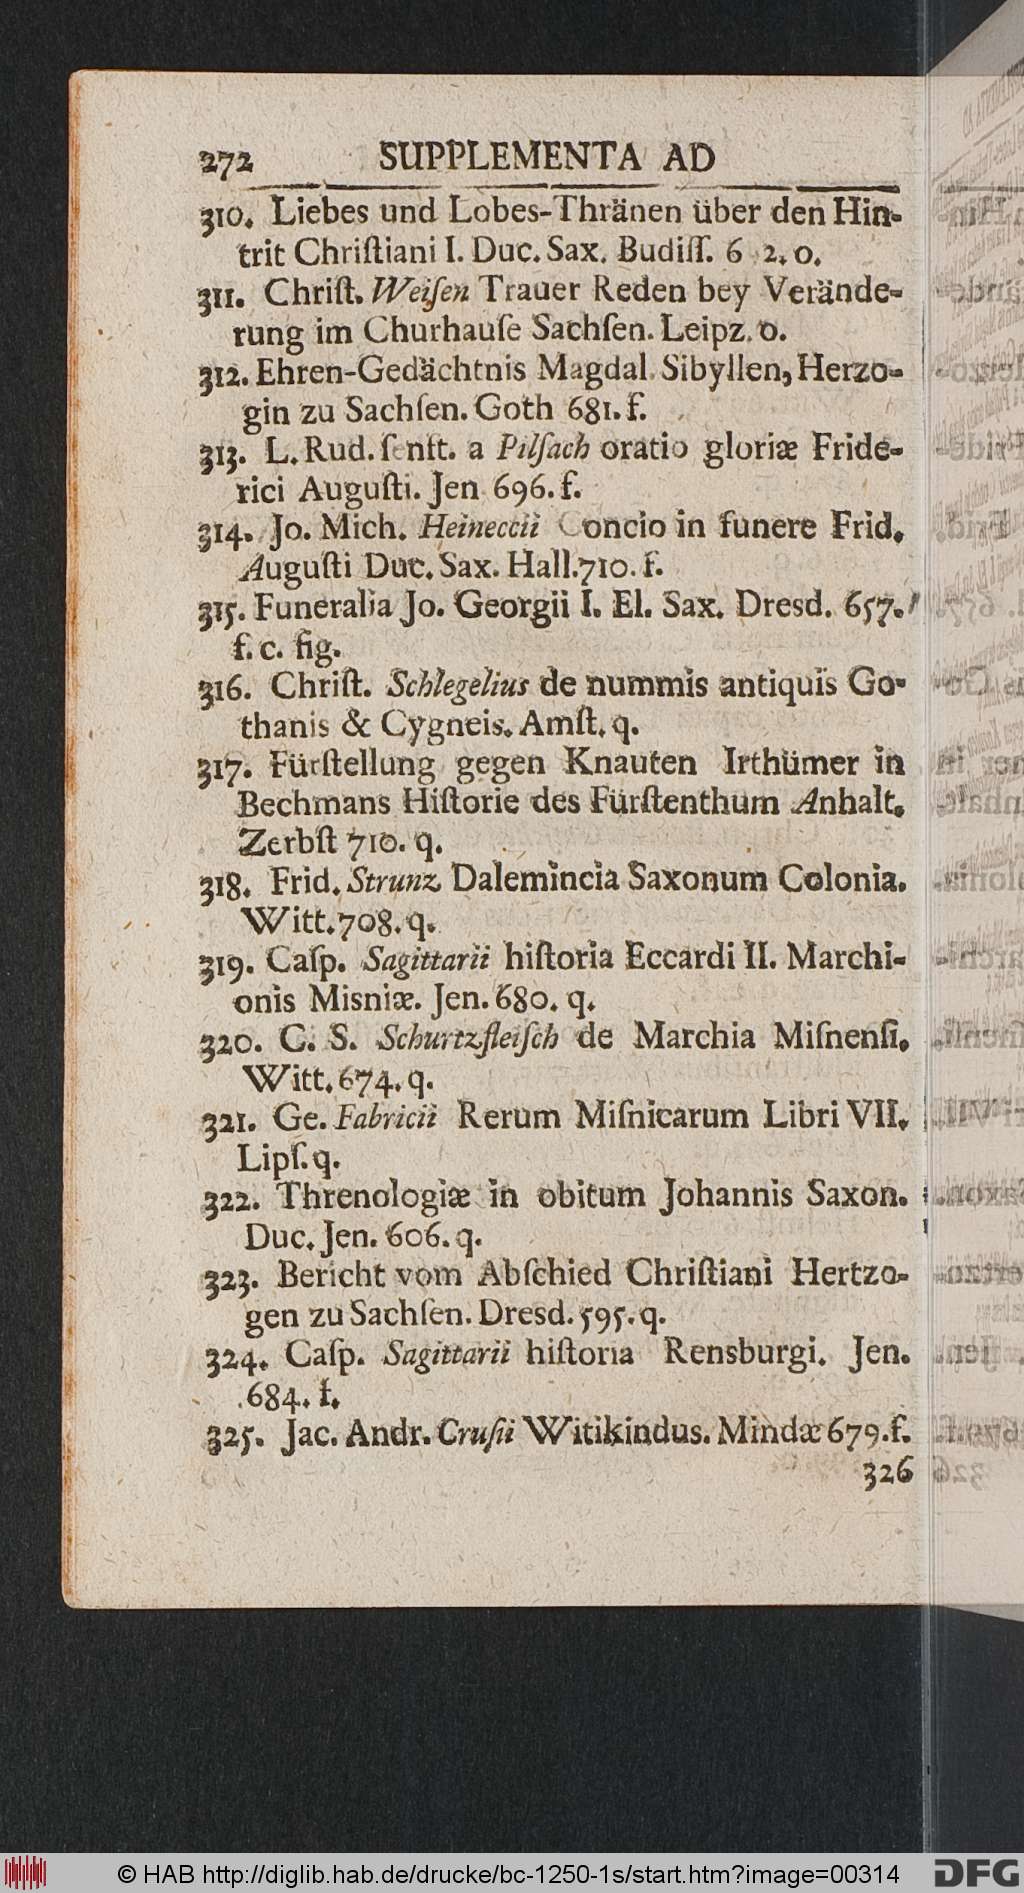 272 SUPPLEMENTA AD
310. Liebes und Lobes-Thränen über den Hin-
trit Chriſtiani I. Duc. Sax. Budiſſ. 6 2. o.
311. Chriſt. Weiſen Trauer Reden bey Verände-
rung im Churhauſe Sachſen. Leipz. o.
312. Ehren-Gedächtnis Magdal. Sibyllen, Herzo-
gin zu Sachſen. Goth 681. f.
313. L. Rud. ſenft. a Pilſach oratio gloriæ Fride-
rici Auguſti. Jen 696. f.
314. Jo. Mich. Heineccii Concio in funere Frid.
Auguſti Duc. Sax. Hall. 710. f.
315. Funeralia Jo. Georgii I. El. Sax. Dresd. 657.
f. c. fig.
316. Chriſt. Schlegelius de nummis antiquis Go-
thanis & Cygneis. Amſt. q.
317. Fürſtellung gegen Knauten Irthümer in
Bechmans Hiſtorie des Fürſtenthum Anhalt.
Zerbſt 710. q.
318. Frid. Strunz Dalemincia Saxonum Colonia.
Witt. 708. q.
319. Caſp. Sagittarii hiſtoria Eccardi II. Marchi-
onis Misniæ. Jen. 680. q.
320. C. S. Schurtzfleiſch de Marchia Miſnenſi.
Witt. 674. q.
321. Ge. Fabricii Rerum Miſnicarum Libri VII.
Lipſ. q.
322. Threnologiæ in obitum Johannis Saxon.
Duc. Jen. 606. q.
323. Bericht vom Abſchied Chriſtiani Hertzo-
gen zu Sachſen. Dresd. 595. q.
324. Caſp. Sagittarii hiſtoria Rensburgi. Jen.
684. f.
325. Jac. Andr. Cruſii Witikindus. Mindæ 679. f.
326
© HAB http://diglib.hab.de/drucke/bc-1250-1s/start.htm?image=00314
DFG